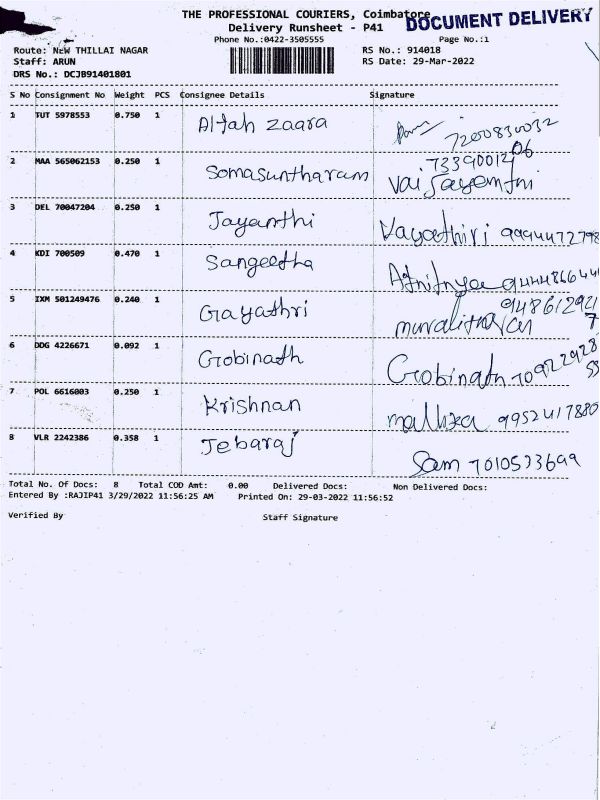 THE PROFESSIONAL COURIERS, Coimbatore
DOCUMENT DELIVERY
Delivery Runsheet - P41
Phone No.:0422-3505555
Page No.:1
Route: NEW THILLAI NAGAR
RS No.: 914018
Staff: ARUN
RS Date: 29-Mar-2022
DRS No.: DCJB91401801
S No Consignment No Weight PCS Consignee Details Signature
1 TUT 5978553 0.750 1 Altah zaara 7200830032
2 MAA 565062153 0.250 1 Somasuntharam 7339001206
3 DEL 70047204 0.250 1 Jayanthi 9994472798
4 KDI 700509 0.470 1 Sangeetha
5 IXM 501249476 0.240 1 Gayathri
6 DDG 4226671 0.092 1 Gobinath Gobinath
7 POL 6616003 0.250 1 Krishnan mallika 9952417880
8 VLR 2242386 0.358 1 Jebaraj Sam 7010533699
Total No. Of Docs: 8 Total COD Amt: 0.00 Delivered Docs: Non Delivered Docs:
Entered By :RAJIP41 3/29/2022 11:56:25 AM Printed On: 29-03-2022 11:56:52
Verified By Staff Signature